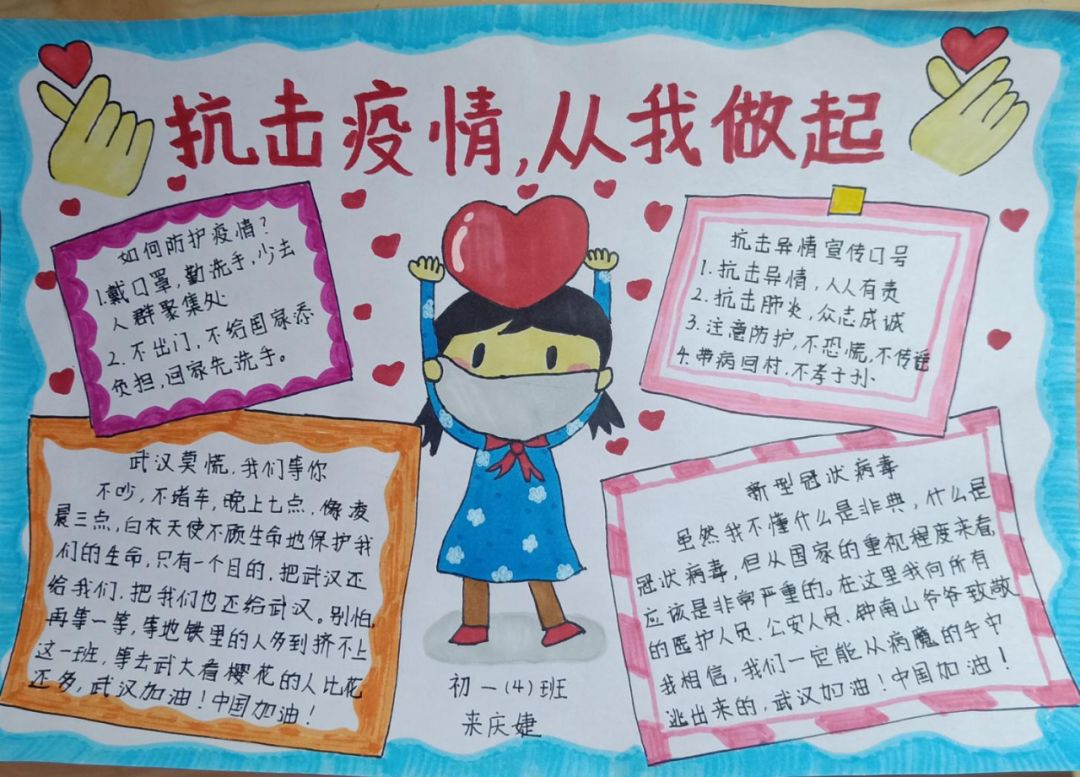 抗击疫情,从我做起
如何防护疫情?
1.戴口罩,勤洗手,少去
人群聚集处
2.不出门,不给国家添
负担,回家先洗手。
抗击异情宣传口号
1.抗击异情,人人有责
2.抗击肺炎,众志成诚
3.注意防护,不恐慌,不传谣
4.带病回村,不孝子孙
武汉莫慌,我们等你
不吵,不堵车,晚上七点,像凌
晨三点,白衣天使不顾生命地保护我
们的生命,只有一个目的,把武汉还
给我们.把我们也还给武汉。别怕,
再等一等,等地铁里的人多到挤不上
这一班,等去武大看樱花的人比花
还多,武汉加油!中国加油!
新型冠状病毒
虽然我不懂什么是非典,什么是
冠状病毒,但从国家的重视程度来看,
应该是非常严重的。在这里我向所有
的医护人员、公安人员、钟南山爷爷致敬
我相信,我们一定能从病魔的手中
逃出来的,武汉加油!中国加油!
初一(4)班
来庆婕